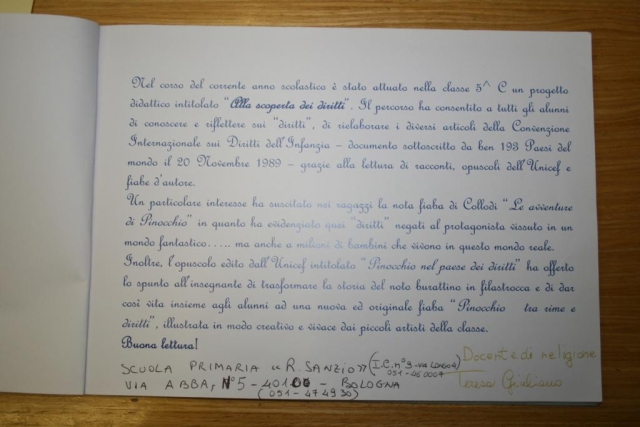 Nel corso del corrente anno scolastico è stato attuato nella classe 5^ C un progetto
didattico intitolato "Alla scoperta dei diritti". Il percorso ha consentito a tutti gli alunni
di conoscere e riflettere sui "diritti", di rielaborare i diversi articoli della Convenzione
Internazionale sui Diritti dell'Infanzia – documento sottoscritto da ben 193 Paesi del
mondo il 20 Novembre 1989 – grazie alla lettura di racconti, opuscoli dell'Unicef e
fiabe d'autore.
Un particolare interesse ha suscitato nei ragazzi la nota fiaba di Collodi "Le avventure
di Pinocchio" in quanto ha evidenziato quei "diritti" negati al protagonista vissuto in un
mondo fantastico...... ma anche a milioni di bambini che vivono in questo mondo reale.
Inoltre, l'opuscolo edito dall'Unicef intitolato "Pinocchio nel paese dei diritti" ha offerto
lo spunto all'insegnante di trasformare la storia del noto burattino in filastrocca e di dar
così vita insieme agli alunni ad una nuova ed originale fiaba "Pinocchio tra rime e
diritti", illustrata in modo creativo e vivace dai piccoli artisti della classe.
Buona lettura!
SCUOLA PRIMARIA "R. SANZIO" (I.C. n° 9 - VIA LONGO 4) Docente di religione
VIA ABBA, N°5 - 40100 - BOLOGNA Teresa Giuliano
(051 - 47 49 30)